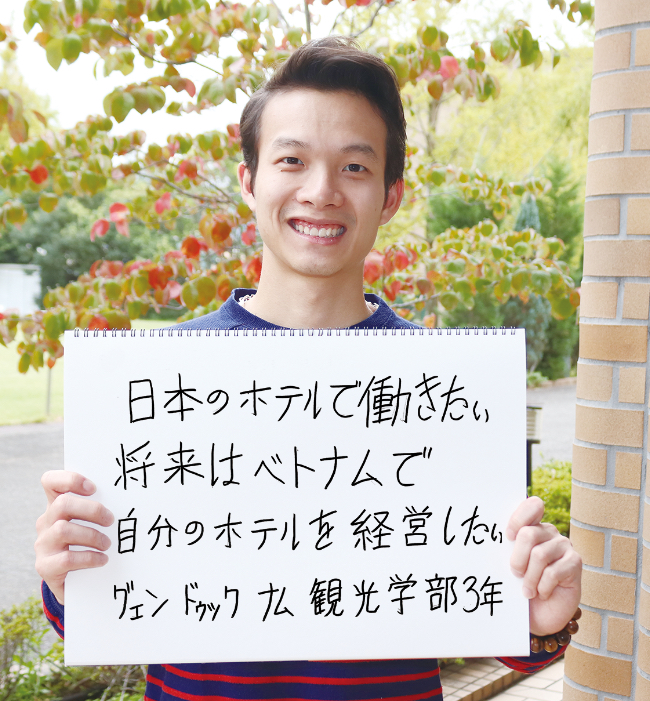 日本のホテルで働きたい
将来はベトナムで
自分のホテルを経営したい
グェン ドゥック ナム 観光学部3年